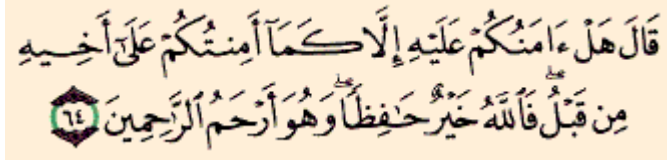 قَالَ هَلْ ءَامَنُكُمْ عَلَيْهِ إِلَّا كَمَآ أَمِنتُكُمْ عَلَىٰٓ أَخِيهِ
مِن قَبْلُ ۖ فَٱللَّهُ خَيْرٌ حَٰفِظًا ۖ وَهُوَ أَرْحَمُ ٱلرَّٰحِمِينَ ٦٤